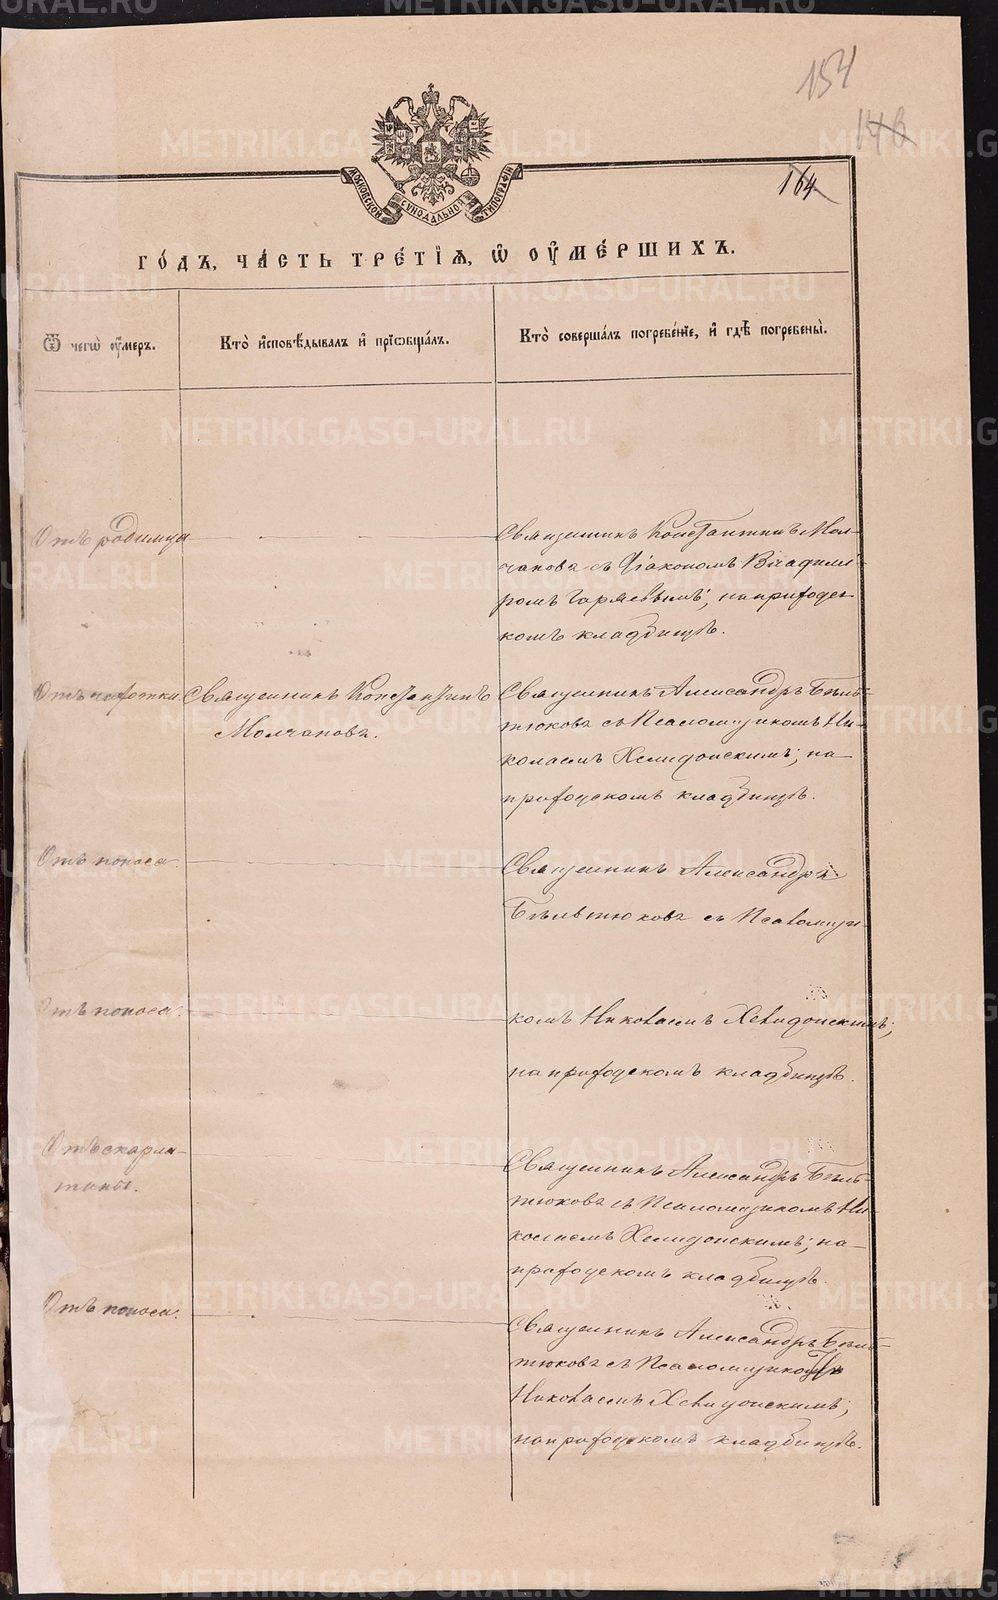 154
146
164
МОСКОВСКОЙ СѴНОДАЛЬНОЙ ТИПОГРАФІИ
ГО́ДЪ, ЧА́СТЬ ТРЕ́ТІѦ, Ѡ҆ ОУ҆МЕ́РШИХЪ.
Ѿ чегѡ̀ оу҆́меръ.
Кто̀ и҆сповѣ́дывалъ и҆ пріѡбща́лъ.
Кто̀ соверша́лъ погребе́нїе, и҆ гдѣ̀ погребены̀.
Отъ родимца
Священникъ Константинъ Мол-
чановъ съ Діакономъ Владимі-
ромъ Горяевымъ; на приходс-
комъ кладбищѣ.
Отъ чахотки
Священникъ Константинъ
Молчановъ.
Священникъ Александръ Бѣль-
тюковъ съ Псаломщикомъ Ни-
колаемъ Хелидонскимъ; на
приходскомъ кладбищѣ.
Отъ поноса
Священникъ Александръ
Бѣльтюковъ съ Псаломщи-
Отъ поноса.
комъ Николаемъ Хелидонскимъ;
на приходскомъ кладбищѣ.
Отъ скарла-
тины.
Священникъ Александръ Бѣль-
тюковъ съ Псаломщикомъ Ни-
колаемъ Хелидонскимъ; на
приходскомъ кладбищѣ.
Отъ поноса.
Священникъ Александръ Бѣль-
тюковъ съ Псаломщикомъ
Николаемъ Хелидонскимъ;
на приходскомъ кладбищѣ.
METRIKI.GASO-URAL.RU